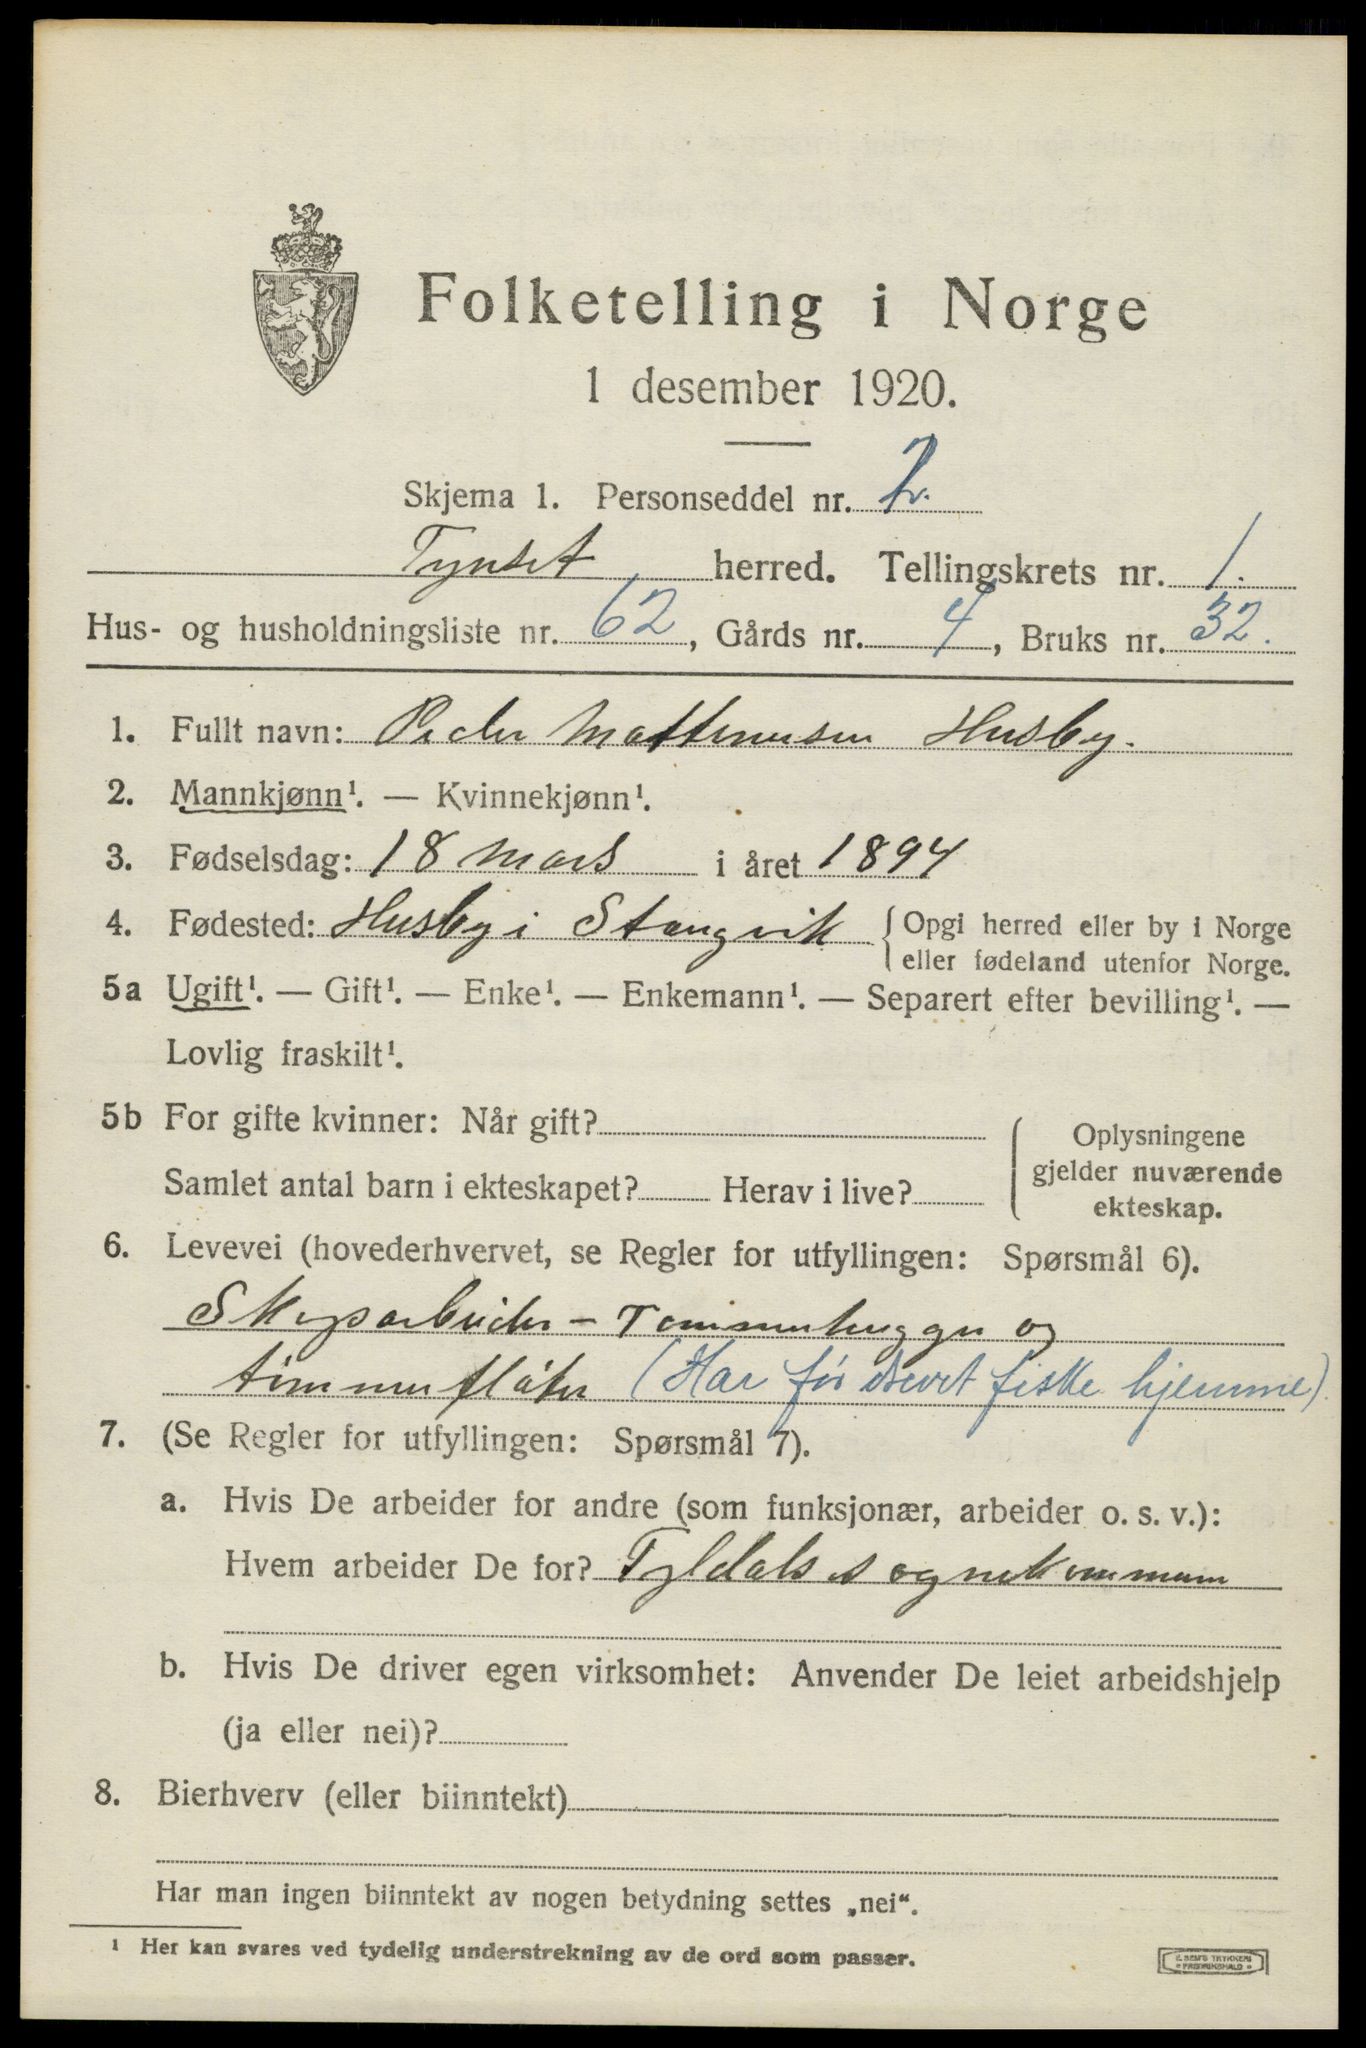 Folketelling i Norge
1 desember 1920.
Skjema 1. Personseddel nr. 2.
Tynset herred. Tellingskrets nr. 1.
Hus- og husholdningsliste nr. 62, Gårds nr. 4, Bruks nr. 32.
1. Fullt navn: Peder Husby.
2. Mannkjønn¹. — Kvinnekjønn¹.
3. Fødselsdag: 18 mars i året 1894
4. Fødested: Husby i Stangvik { Opgi herred eller by i Norge
eller fødeland utenfor Norge.
5a Ugift¹. — Gift¹. — Enke¹. — Enkemann¹. — Separert efter bevilling¹. —
Lovlig fraskilt¹.
5b For gifte kvinner: Når gift?
Samlet antal barn i ekteskapet? Herav i live?
{ Oplysningene
gjelder nuværende
ekteskap.
6. Levevei (hovederhvervet, se Regler for utfyllingen: Spørsmål 6).
Skogsarbeider - Tømmerhugger og
tømmerfløter (Har før drevet fiske hjemme).
7. (Se Regler for utfyllingen: Spørsmål 7).
a. Hvis De arbeider for andre (som funksjonær, arbeider o. s. v.):
Hvem arbeider De for? Tyldals sognekommun
b. Hvis De driver egen virksomhet: Anvender De leiet arbeidshjelp
(ja eller nei)?
8. Bierhverv (eller biinntekt)
Har man ingen biinntekt av nogen betydning settes „nei“.
¹ Her kan svares ved tydelig understrekning av de ord som passer.
E. SEM'S TRYKKERI
FREDRIKSHALD